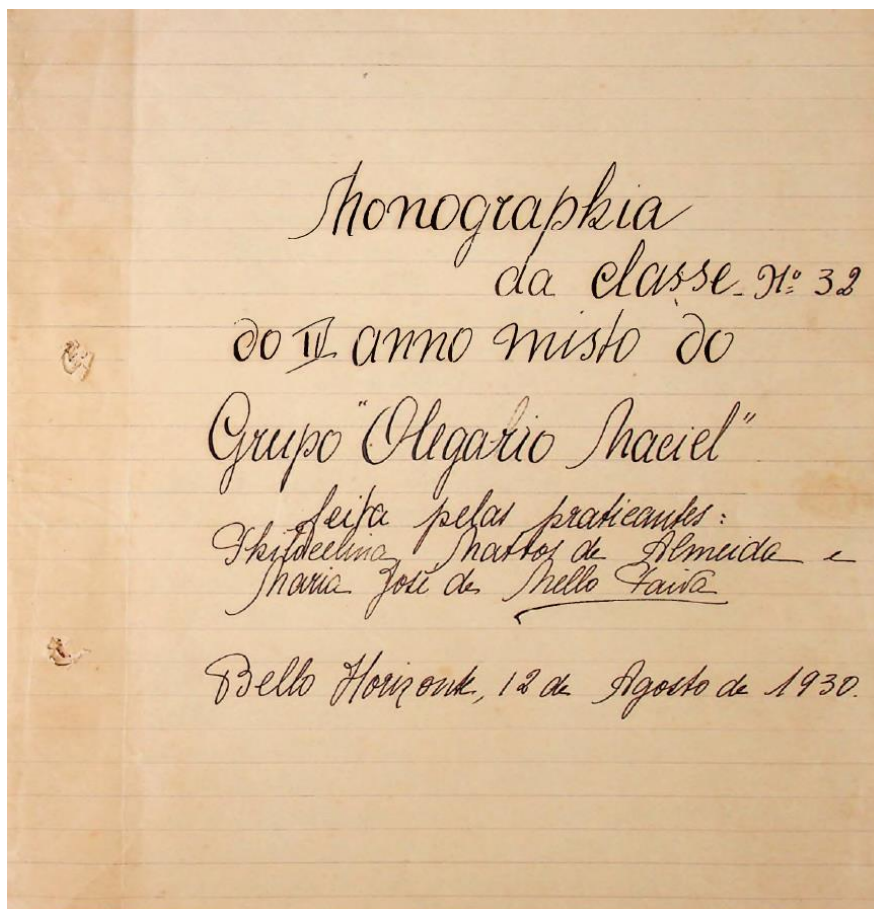 Monographia
da classe Nº 32
do IV anno misto do
Grupo "Olegario Maciel"
feita pelas praticantes:
Mattos de Almeida e
Maria José de Mello Paiva
Bello Horizonte, 12 de Agosto de 1930.